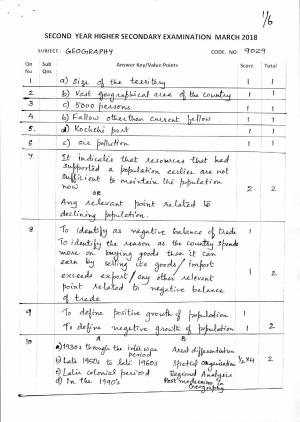 1/6
SECOND YEAR HIGHER SECONDARY EXAMINATION MARCH 2018
SUBJECT: GEOGRAPHY CODE. NO: 9029
Qn No Sub Qns Answer Key/Value Points Score Total
1. a) Size of the territory 1 1
2. b) Vast geographical area of the country 1 1
3. c) 5000 persons 1 1
4. b) Fallow other than current fallow 1 1
5. d) Kochchi port 1 1
6 c) air pollution 1 1
7. It indicates that resources that had
supported a population earlier are not
sufficient to maintain the population
now 2 2
OR
Any relevant point related to
declining population.
8 To identify as negative balance of trade 1
To identify the reason as the country spends
more on buying goods than it can
earn by selling its goods / import
exceeds export / any other relevant 1 2
point related to negative balance
of trade
9 To define positive growth of population 1
To define negative growth of population 1 2
10 A B
a) 1930s through the inter war period Areal differentiation
b) Late 1950s to late 1960s Spatial organisation ½x4 2
c) Later colonial period Regional Analysis
d) In the 1990's Post modernism in Geography